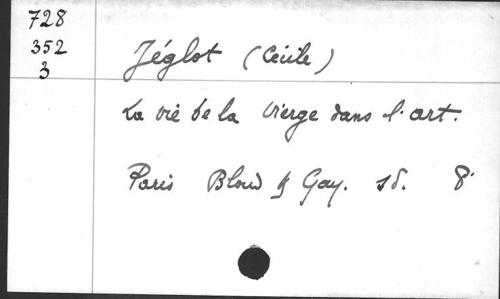 728
352
3
Jéglot (Cécile)
La vie de la Vierge dans l'art.
Paris Bloud & Gay. sd. 8°